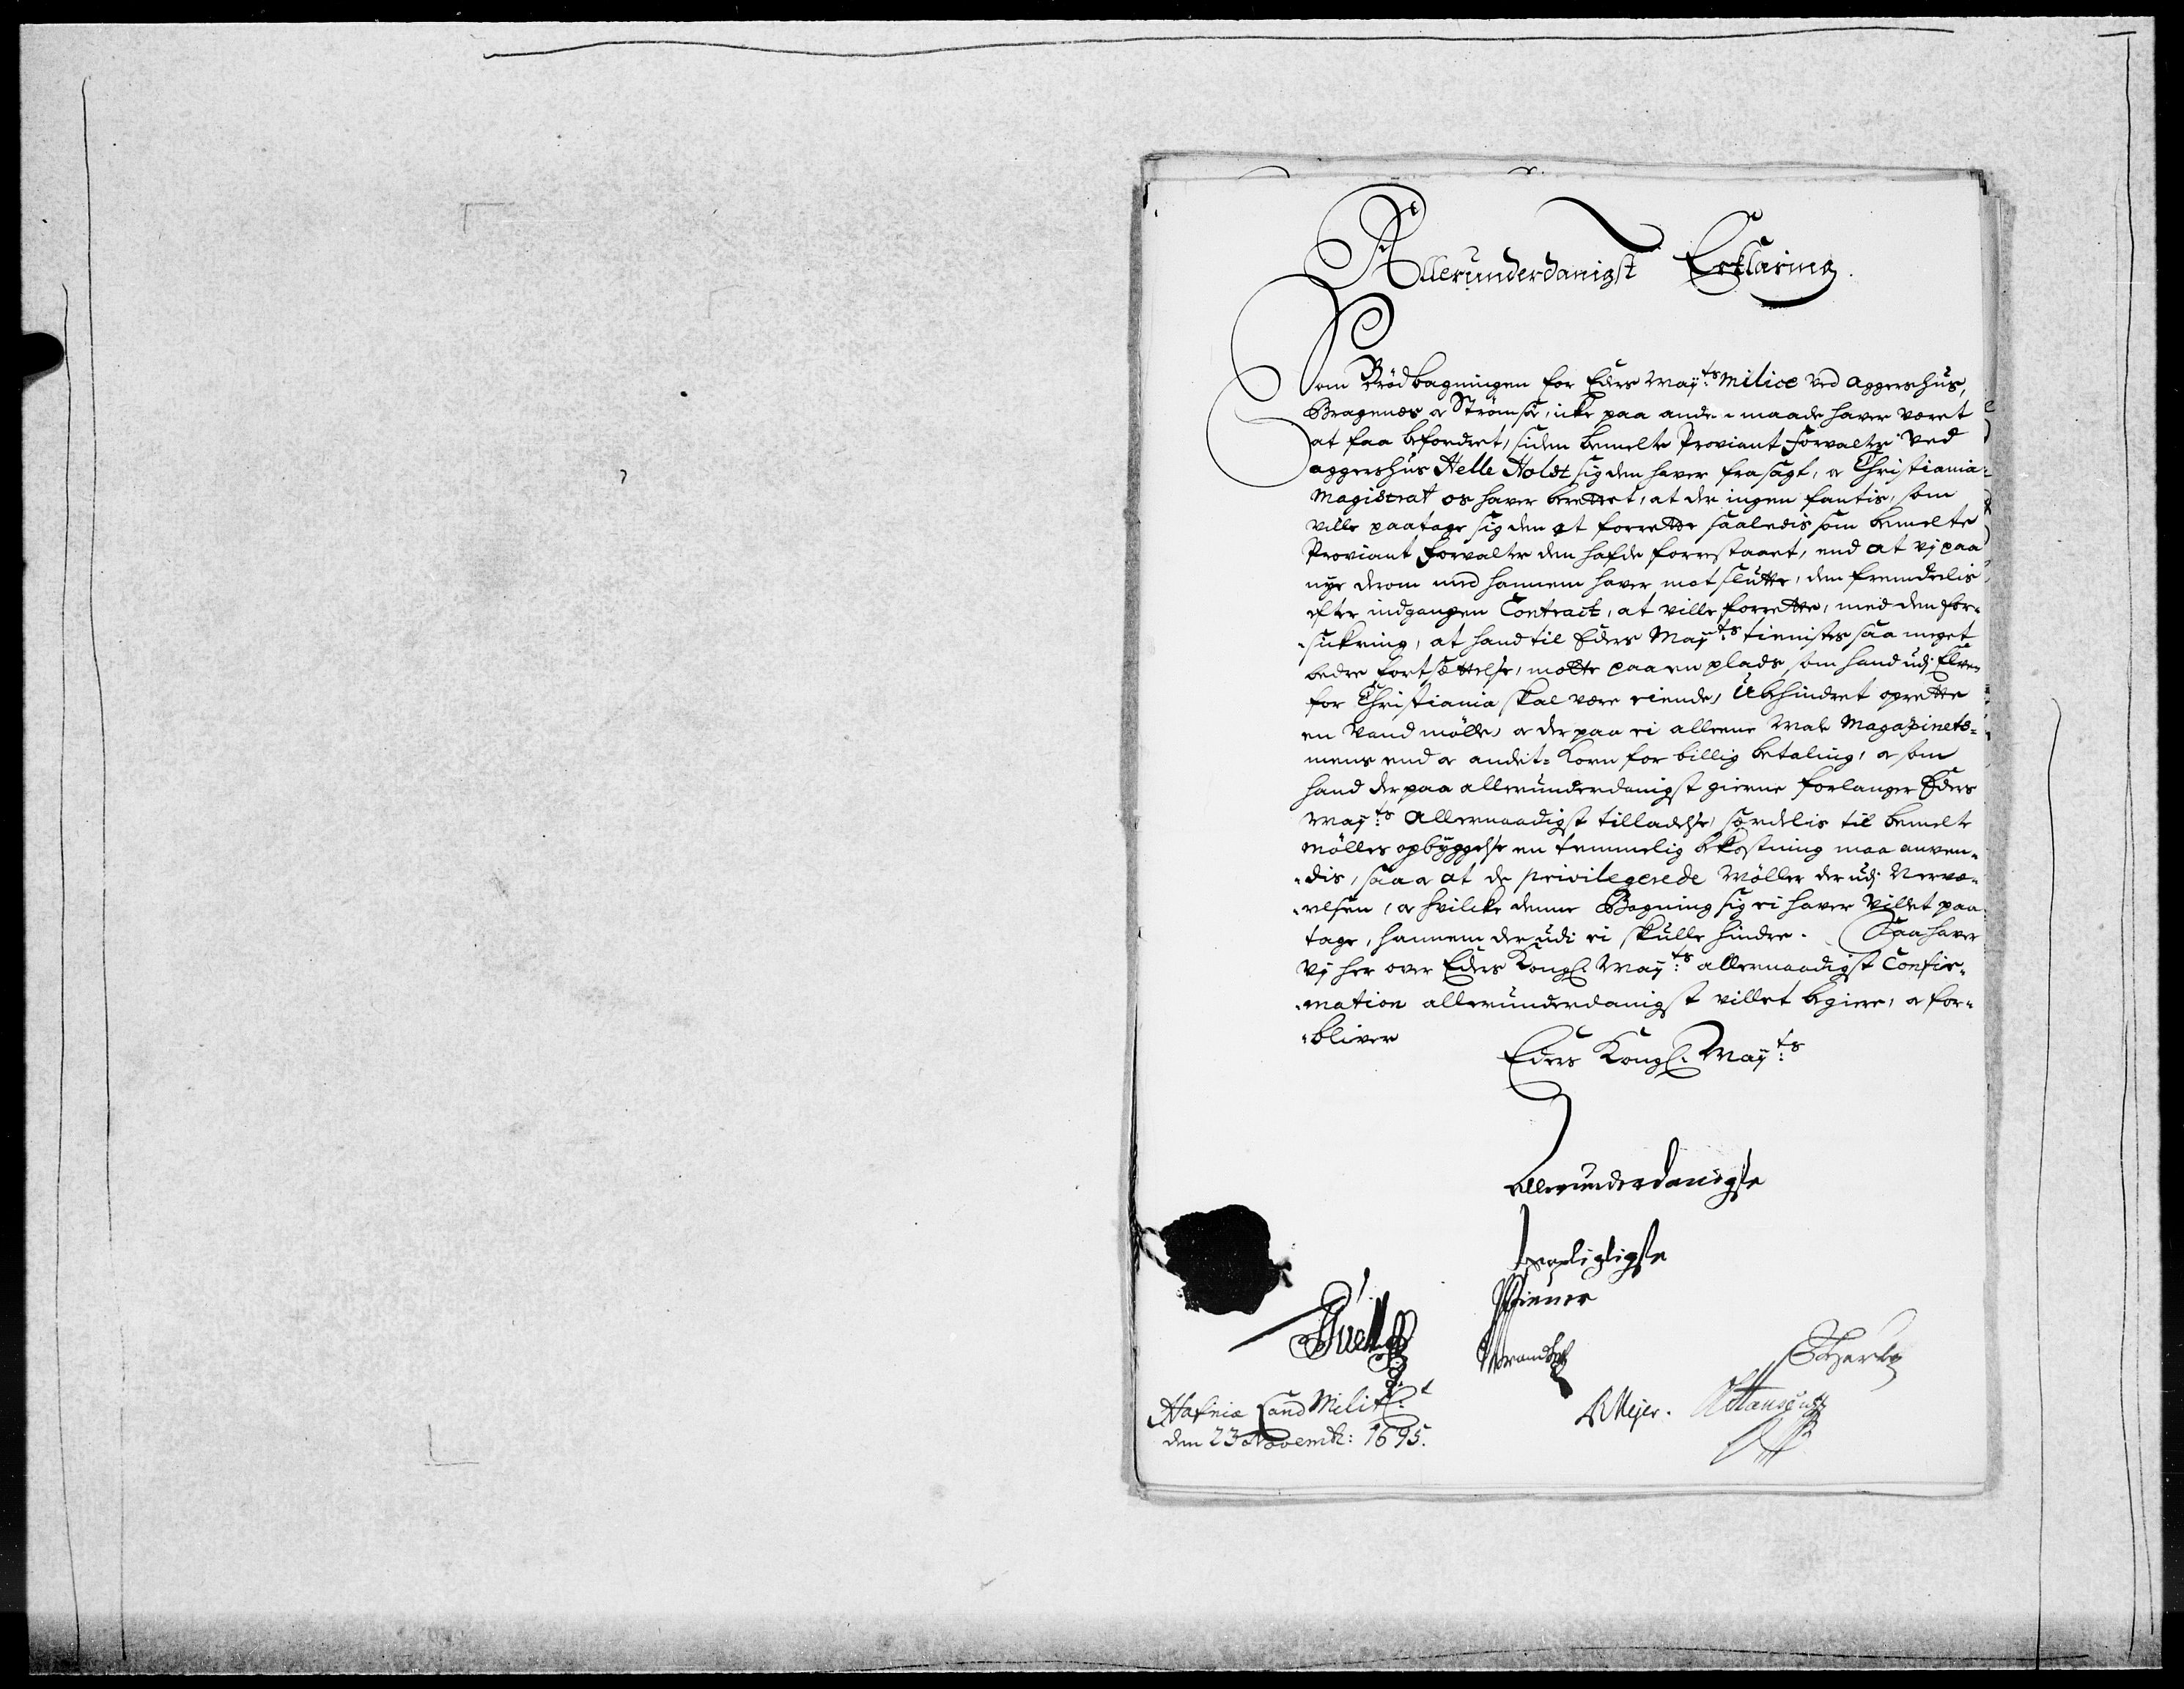 Allerunderdanigst Erklæring.
Som Brödbagningen for Eders Maÿ:ts Milice ved Aggershus,
Bragenes og Strömsö, icke paa anden maade haver været
at faa befordret, siden bemelte Proviant Forvalter ved
Aggershus Helle Holst sig den haver frasagt, og Christiania
Magistrat os haver berettet, at der ingen fantis, som
ville paatage sig den at forrette saaledis som bemelte
Proviant Forvalter den hafde forrestaaet, end at vj paa
nye derom med hannem haver mot slutte, den fremdeelis
efter indgangen Contract, at ville forrette, med den for-
-sickring, at hand til Eders Maÿ:ts tienistes saa meget
bedre fortsættelse, motte paa en plads, som hand udj Elven
for Christiania skal være eiende, Ubehindret oprette
en Vand mölle, og der paa ei alleene Male Magazinets-
mens end og andet Korn for billig betaling, og som
hand der paa allerunderdanigst gierne forlanger Eders
Maÿ:ts Allernaadigst tilladelse, særdelis til bemelte
Mölles opbyggelse en temmelig bekostning maa anven-
-dis, saa og at de privilegerede Möller der udj Nervæ-
-relsen, og hvilcke denne Bagning sig ei haver villet paa
tage, hannem der udi ei skulle hindre. Saa haver
Vj her over Eders Kongl: Maÿ:ts allernaadigst Confir-
-mation allerunderdanigst villet begiere, og for-
-bliver
Eders Kongl: Maÿ:ts
Allerunderdanigste
Pligtigste
Tienere
Brandt
Hertz
R Meÿer.
Hansen
Hafniæ Land Milit:
den 23 Novemb: 1695.